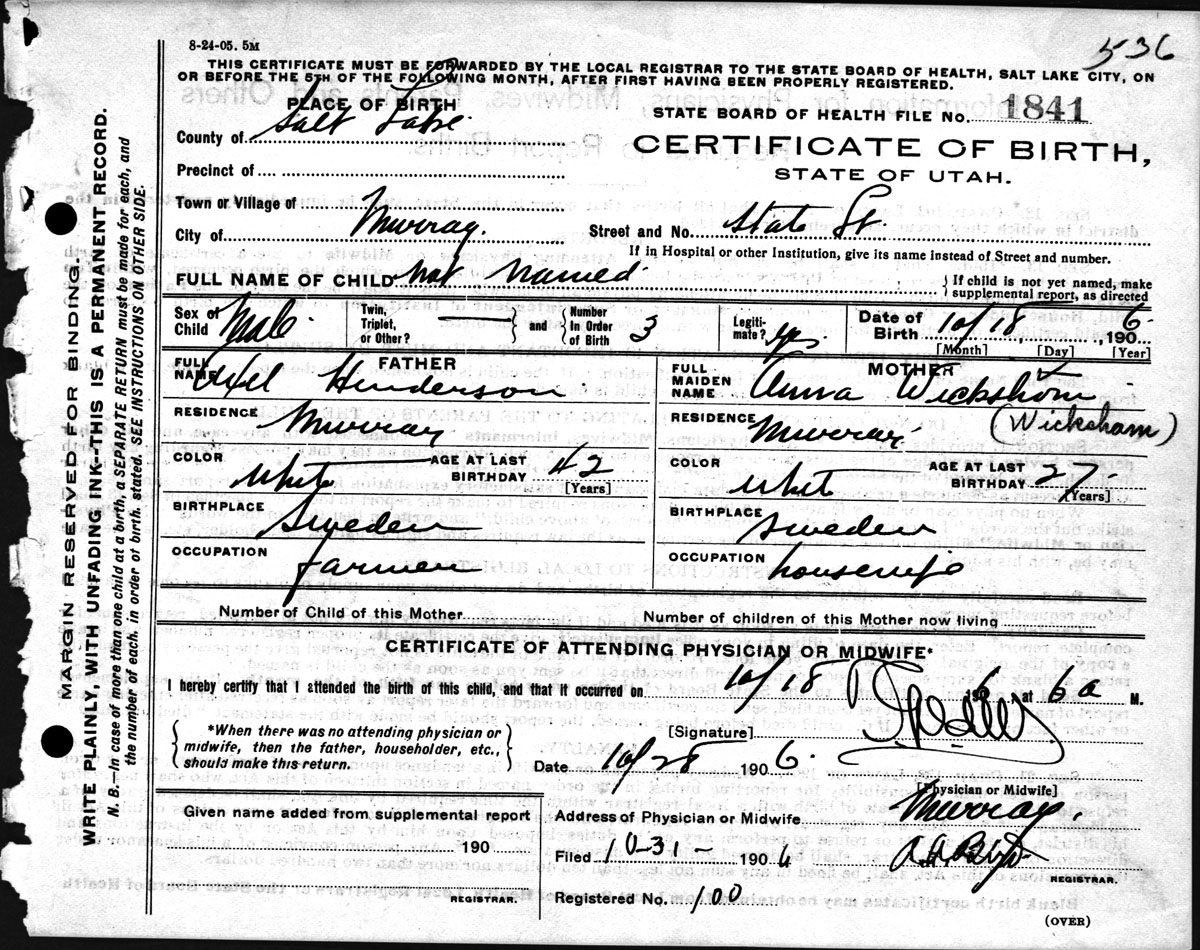 8-24-05. 5M
536
THIS CERTIFICATE MUST BE FORWARDED BY THE LOCAL REGISTRAR TO THE STATE BOARD OF HEALTH, SALT LAKE CITY, ON
OR BEFORE THE 5TH OF THE FOLLOWING MONTH, AFTER FIRST HAVING BEEN PROPERLY REGISTERED.
PLACE OF BIRTH
STATE BOARD OF HEALTH FILE No. 1841
County of Salt Lake
CERTIFICATE OF BIRTH,
Precinct of
STATE OF UTAH.
Town or Village of
City of Murray. Street and No. State St.
If in Hospital or other Institution, give its name instead of Street and number.
FULL NAME OF CHILD Not Named { If child is not yet named, make supplemental report, as directed
Sex of Child Male Twin, Triplet, or Other? — and { Number In Order of Birth 3 Legitimate? yes Date of Birth 10/18, 1906
[Month] [Day] [Year]
FATHER MOTHER
FULL NAME Axel Henderson FULL MAIDEN NAME Anna Wickshom
RESIDENCE Murray RESIDENCE Murray (Wicksham)
COLOR White AGE AT LAST BIRTHDAY 42 [Years] COLOR Whit AGE AT LAST BIRTHDAY 27 [Years]
BIRTHPLACE Sweden BIRTHPLACE Sweden
OCCUPATION farmer OCCUPATION housewife
Number of Child of this Mother Number of children of this Mother now living
CERTIFICATE OF ATTENDING PHYSICIAN OR MIDWIFE*
I hereby certify that I attended the birth of this child, and that it occurred on 10/18 6 at 6 a M.
{ *When there was no attending physician or midwife, then the father, householder, etc., should make this return. }
[Signature]
Date 10/28 1906.
[Physician or Midwife]
Given name added from supplemental report
Address of Physician or Midwife Murray.
190
Filed 10-31- 1906
REGISTRAR.
REGISTRAR.
Registered No. 100
(OVER)
MARGIN RESERVED FOR BINDING.
WRITE PLAINLY, WITH UNFADING INK--THIS IS A PERMANENT RECORD.
N. B.—In case of more than one child at a birth, a SEPARATE RETURN must be made for each, and
the number of each, in order of birth, stated. SEE INSTRUCTIONS ON OTHER SIDE.